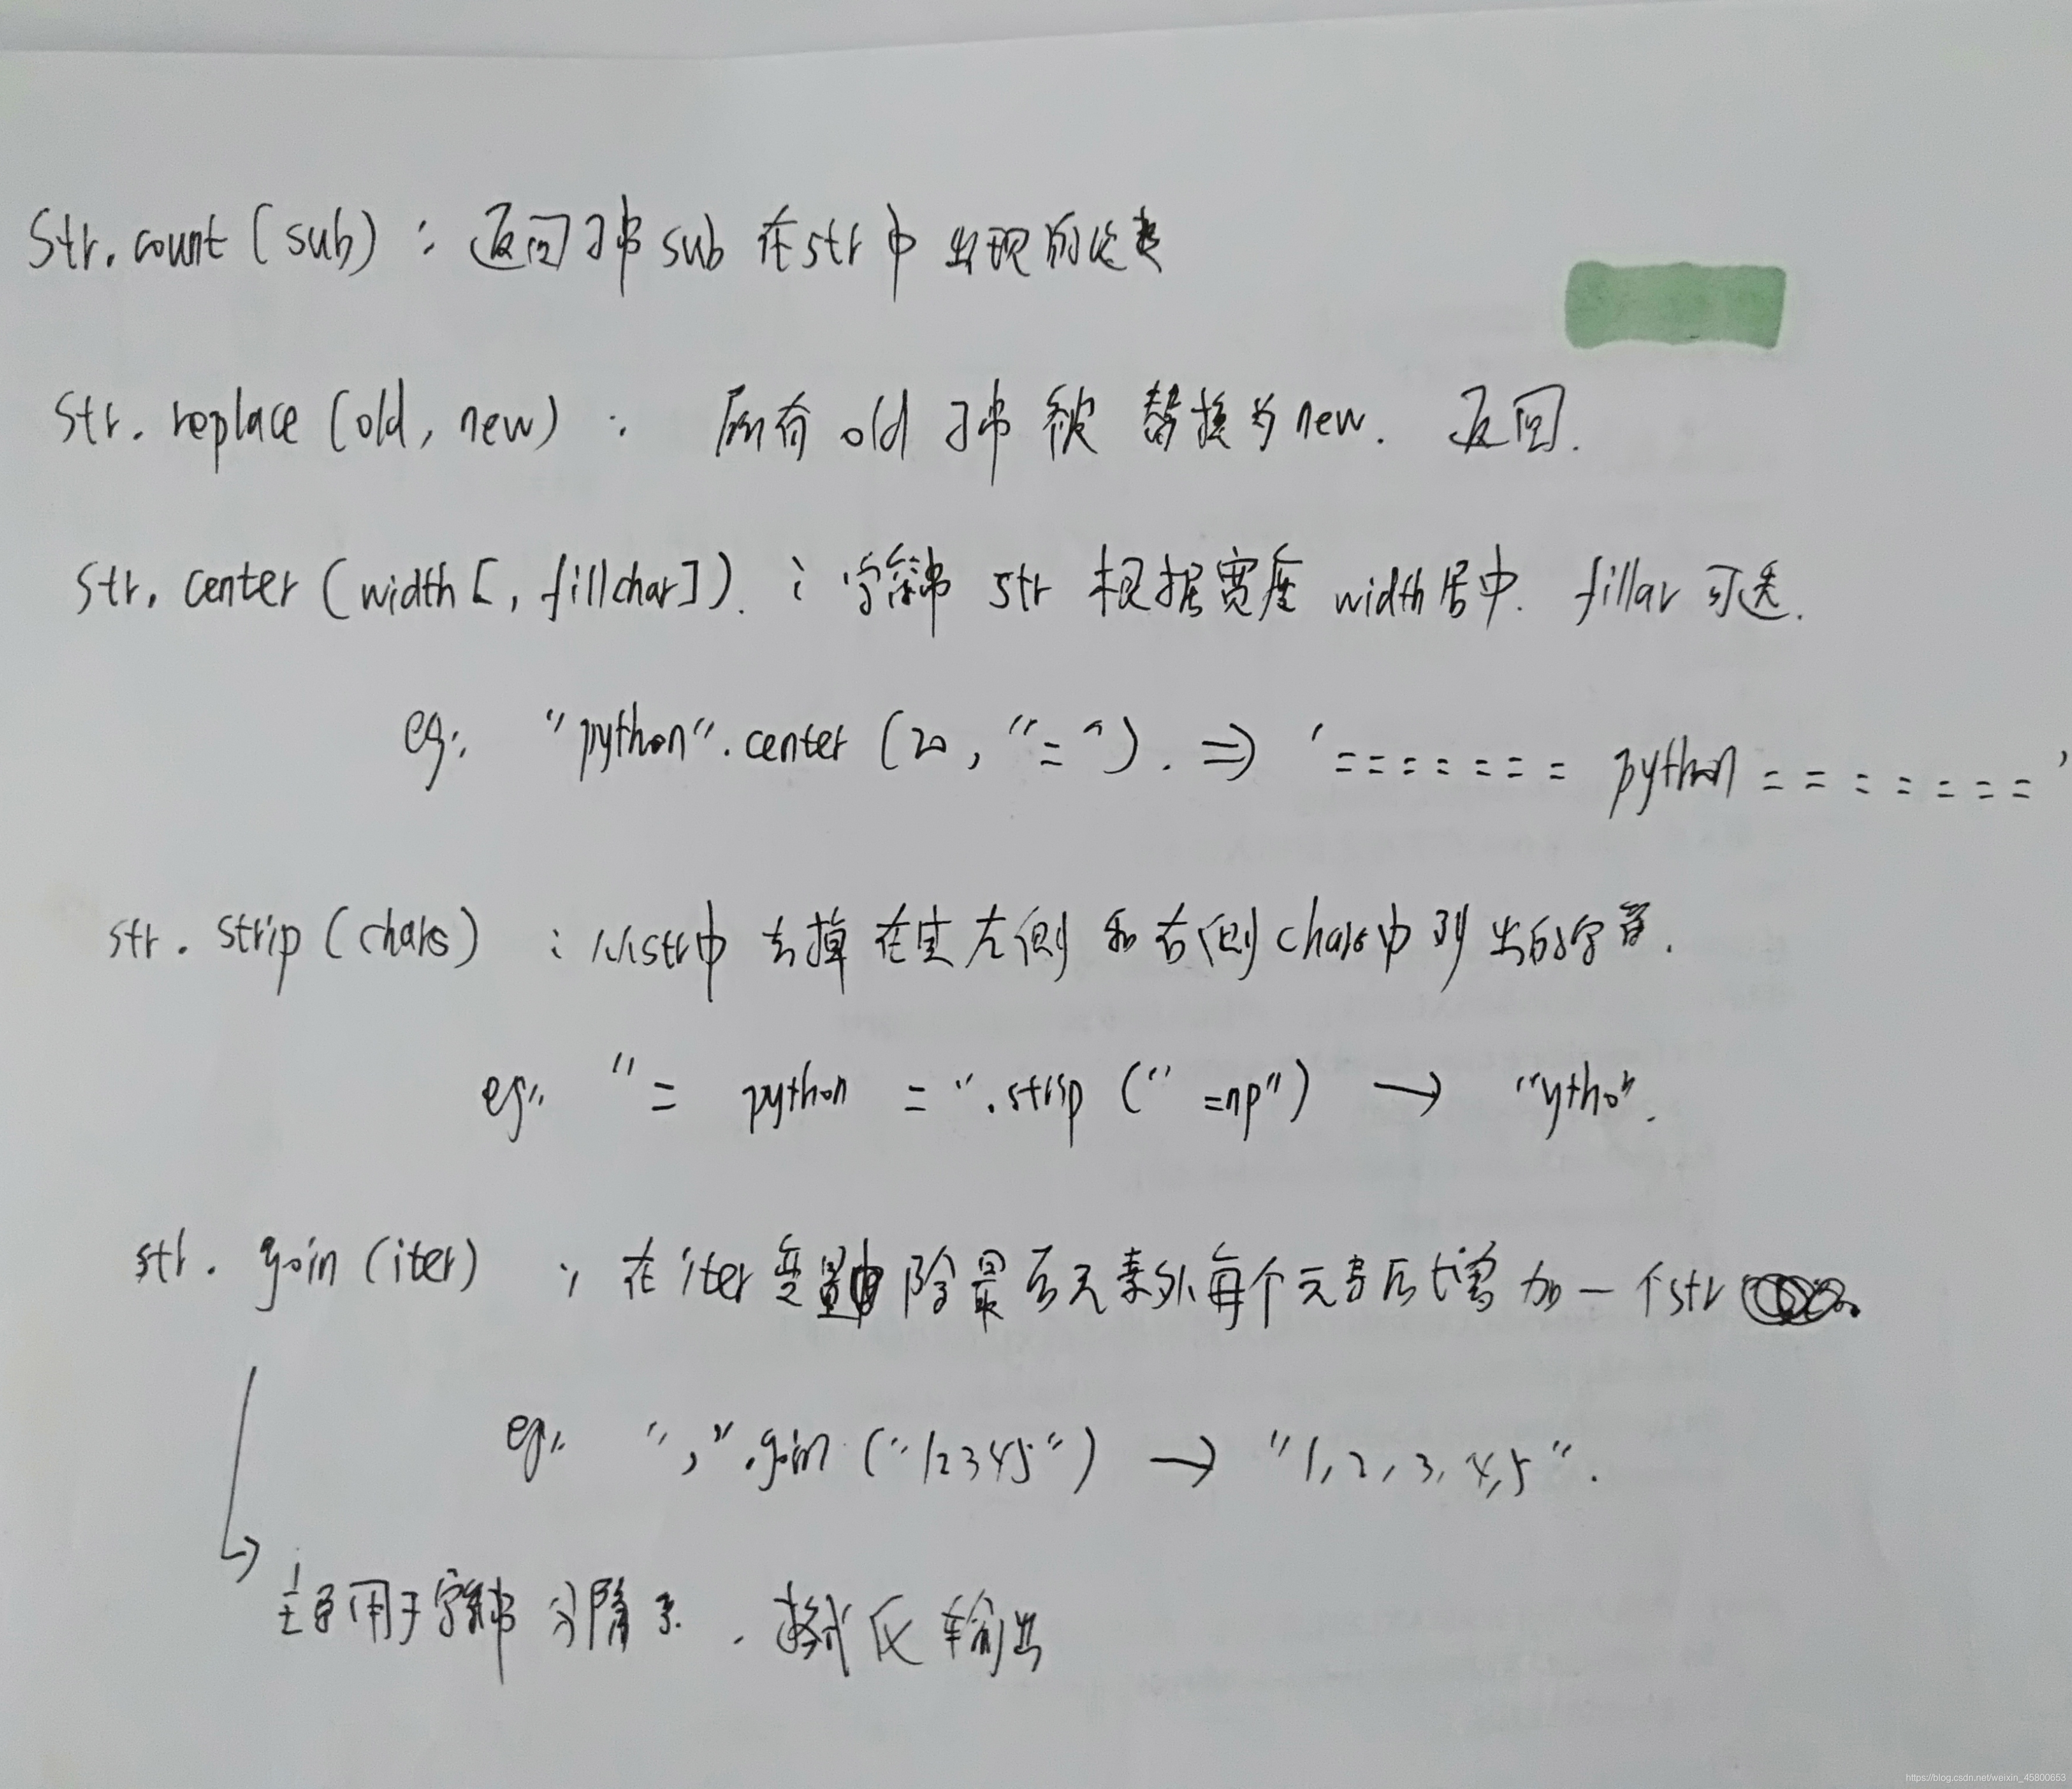 Str.count (sub) : 返回子串 sub 在 str 中 出现的次数
Str. replace (old, new) : 所有 old 子串 被 替换为 new. 返回.
Str. center (width [, fillchar]). : 字符串 str 根据宽度 width 居中. fillar 可选.
eg: "python".center (20, "="). => '======= python ======='
str. strip (chars) : 从str中 去掉 在其左侧 和 右侧 chars中 列出的字符.
eg: "= python =".strip (" =np") → "ytho".
str. join (iter) : 在 iter 变量中 除最后元素外每个元素后增加一个str
eg: ",".join ("12345") → "1, 2, 3, 4, 5".
主要用于字符串 分隔 . 格式化 输出
https://blog.csdn.net/weixin_45800653